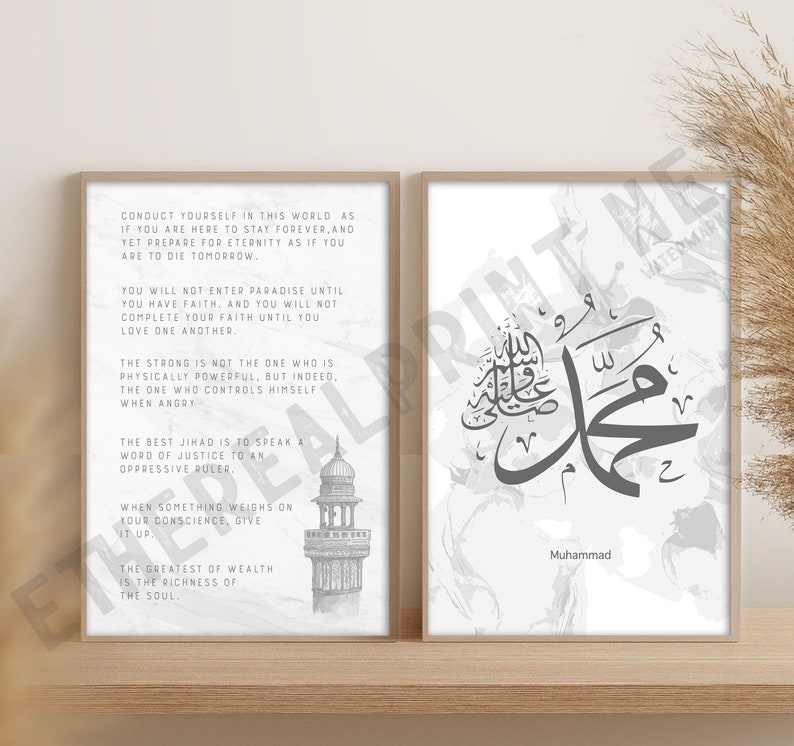 CONDUCT YOURSELF IN THIS WORLD AS
IF YOU ARE HERE TO STAY FOREVER,AND
YET PREPARE FOR ETERNITY AS IF YOU
ARE TO DIE TOMORROW.
YOU WILL NOT ENTER PARADISE UNTIL
YOU HAVE FAITH. AND YOU WILL NOT
COMPLETE YOUR FAITH UNTIL YOU
LOVE ONE ANOTHER.
THE STRONG IS NOT THE ONE WHO IS
PHYSICALLY POWERFUL, BUT INDEED,
THE ONE WHO CONTROLS HIMSELF
WHEN ANGRY
THE BEST JIHAD IS TO SPEAK A
WORD OF JUSTICE TO AN
OPPRESSIVE RULER.
WHEN SOMETHING WEIGHS ON
YOUR CONSCIENCE, GIVE
IT UP.
THE GREATEST OF WEALTH
IS THE RICHNESS OF
THE SOUL.
مُحَمَّدٌ
صلى الله عليه وسلم
Muhammad
ETHEREALPRINT.NET
WATERMARK